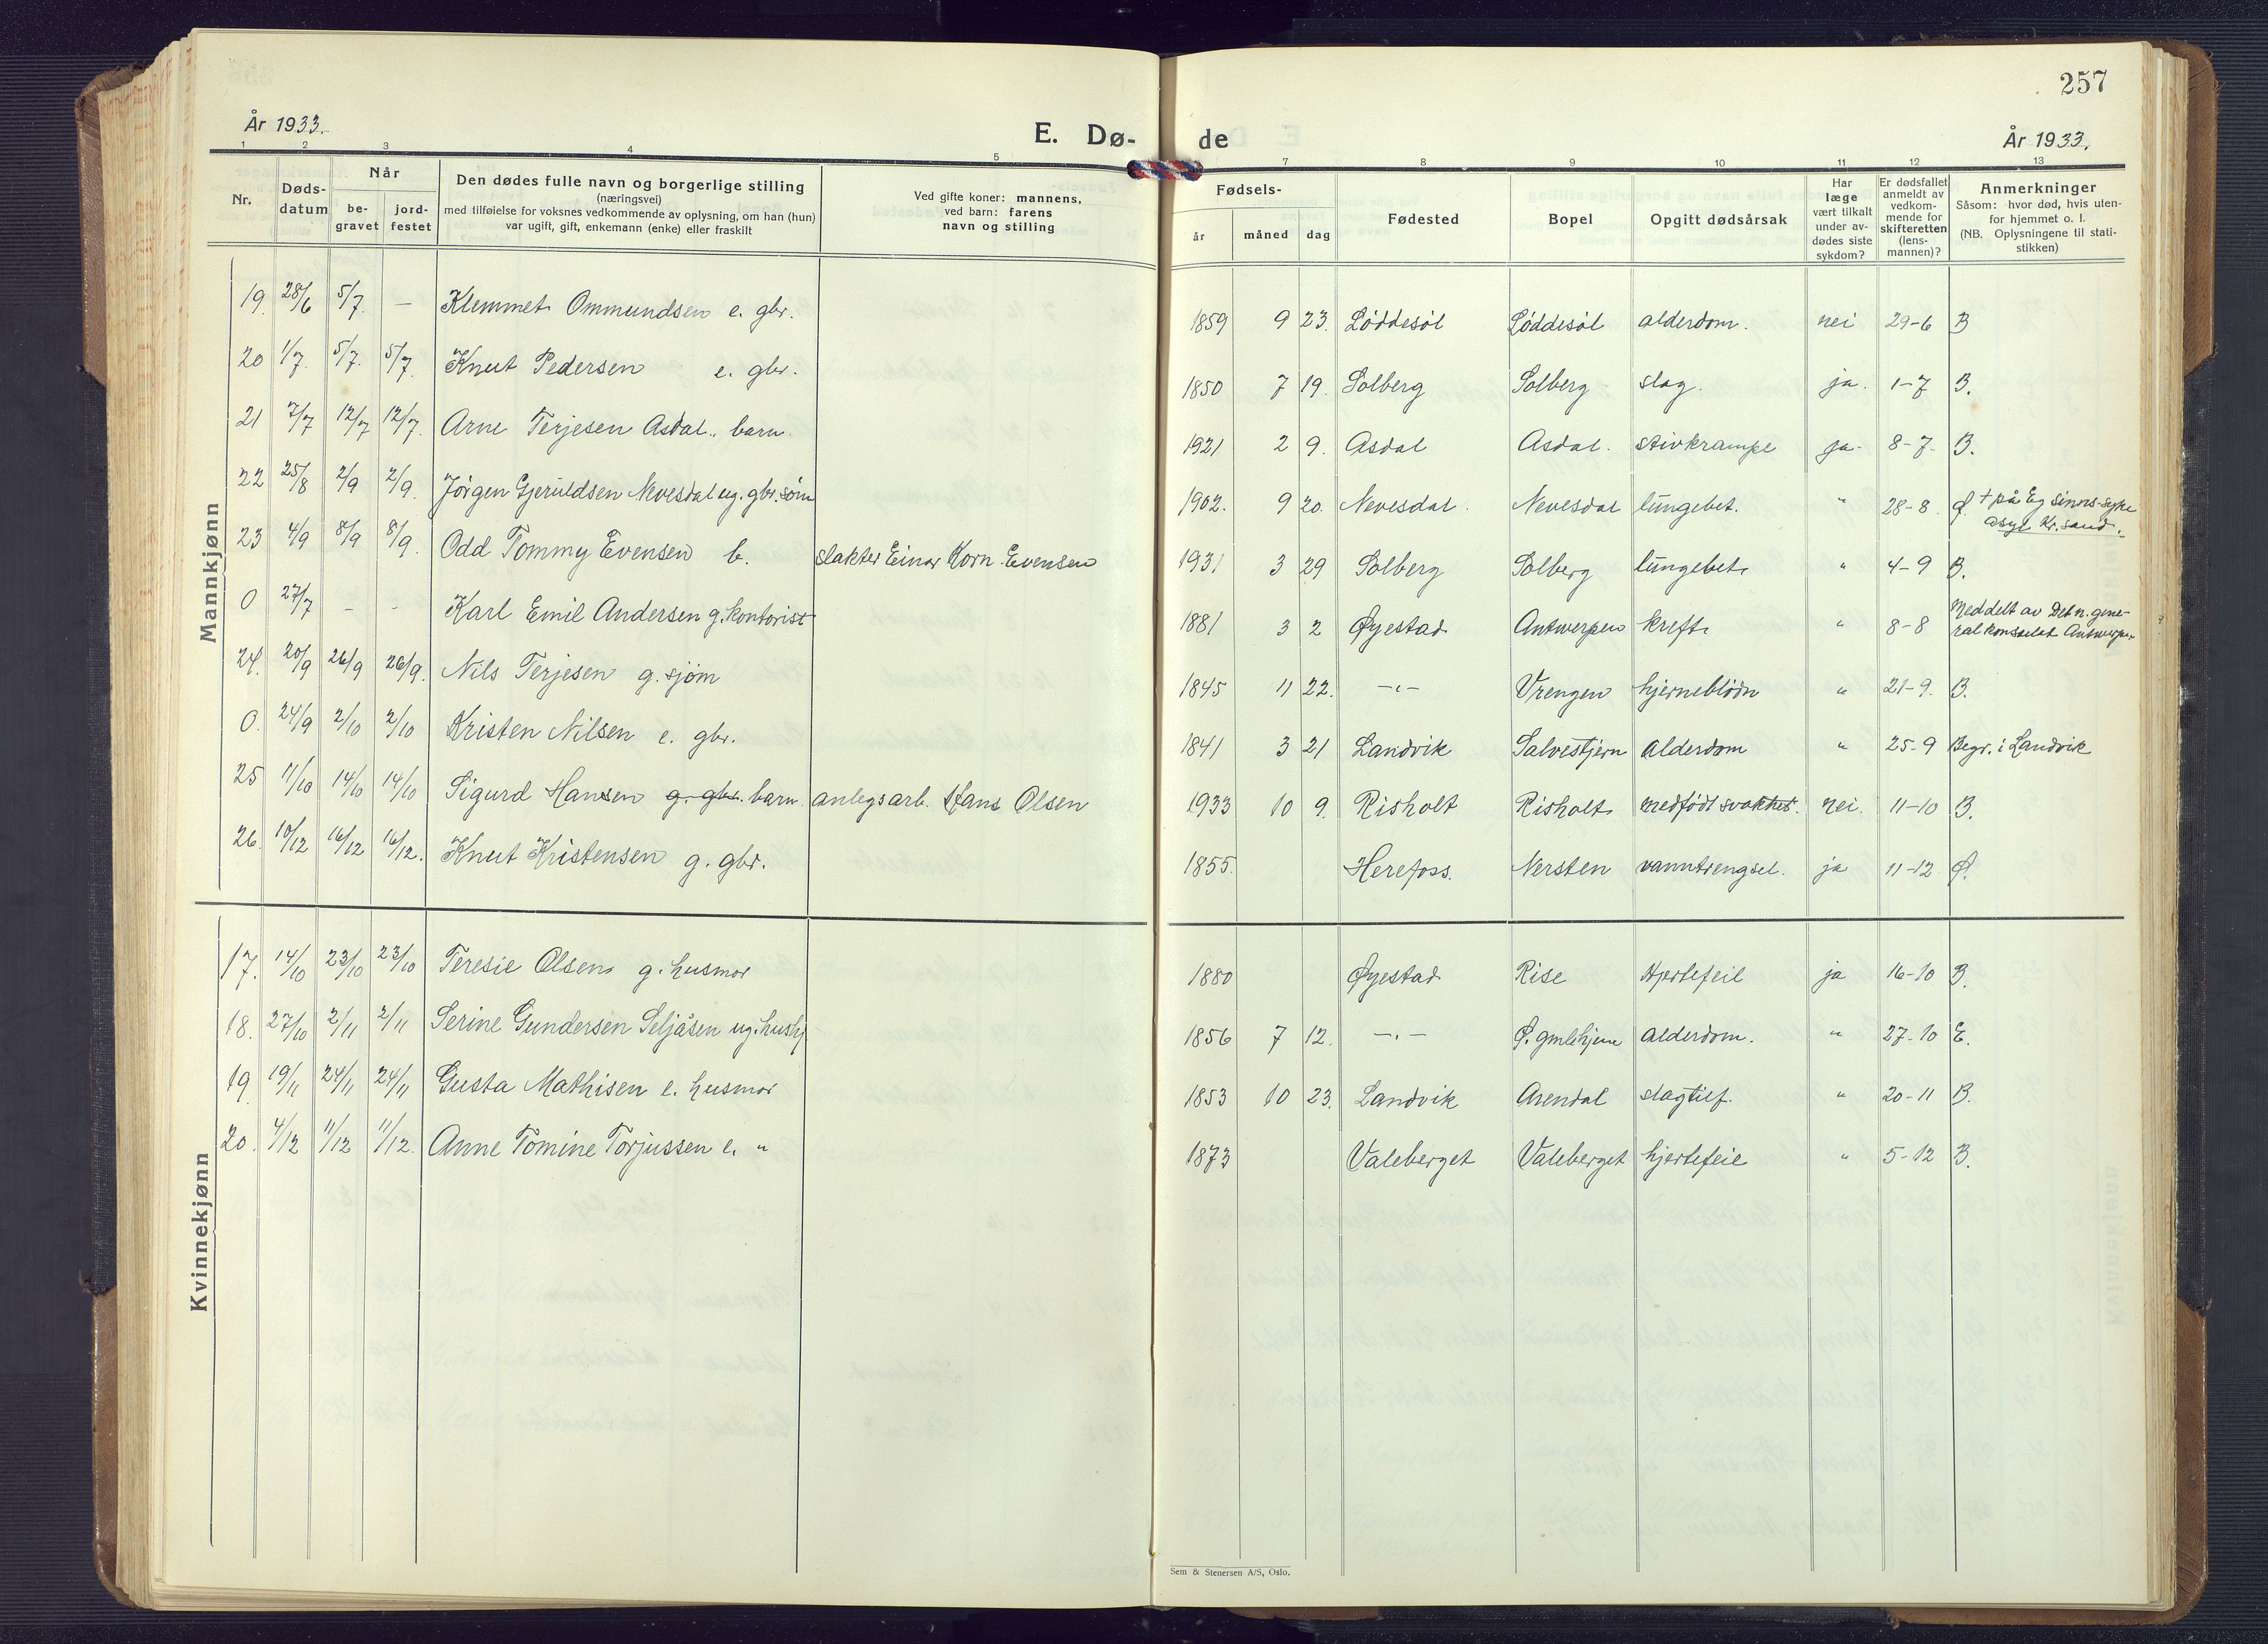 257
År 1933.
E. Dø-
de
År 1933.
1 2 3 4 5 7 8 9 10 11 12 13
Nr.
Døds-
datum
Når
be-
gravet
jord-
festet
Den dødes fulle navn og borgerlige stilling
(næringsvei)
med tilføielse for voksnes vedkommende av oplysning, om han (hun)
var ugift, gift, enkemann (enke) eller fraskilt
Ved gifte koner: mannens,
ved barn: farens
navn og stilling
Fødsels-
år måned dag
Fødested
Bopel
Opgitt dødsårsak
Har
læge
vært tilkalt
under av-
dødes siste
sykdom?
Er dødsfallet
anmeldt av
vedkom-
mende for
skifteretten
(lens-
mannen)?
Anmerkninger
Såsom: hvor død, hvis uten-
for hjemmet o. l.
(NB. Oplysningene til stati-
stikken)
Mannkjønn
19. 28/6 5/7. — Klemmet Ommundsen e. gbr. 1859 9 23. Løddesøl Løddesøl alderdom. nei 29-6 B
20 1/7. 5/7. 5/7. Knut Pedersen e. gbr. 1850 7 19. Solberg Solberg slag. ja. 1-7 B.
21 7/7 12/7 12/7. Arne Terjesen Asdal., barn. 1921 2 9. Asdal Asdal. stivkrampe ja. 8-7. B.
22 25/8 2/9 2/9. Jørgen Gjeruldsen Nevesdal ug. gbr. søn 1902. 9 20. Nevesdal. Nevesdal lungebet. " 28-8. Ø. + på Eg sinns-syke
asyl Kr.sand.
23 4/9 8/9 8/9. Odd Tommy Evensen b. slakter Einar Korn-Evensen 1931 3 29 Solberg Solberg lungebet. " 4-9 B.
0 27/7 - - Karl Emil Andersen g. kontorist 1881 3 2 Øyestad Antwerpen kreft. " 8-8 Meddelt av Det n. gene-
ralkonsulat Antwerpen
24. 20/9 26/9 26/9. Nils Terjesen g. sjøm 1845 11 22. —"— Vrengen hjerneblødn " 21-9. B.
0. 24/9 2/10 2/10 Kristen Nilsen e. gbr. 1841 3 21 Landvik Salvestjern Alderdom " 25-9 Begr. i Landvik
25 11/10 14/10 14/10 Sigurd Hansen g. gbr. barn. anlegsarb. Hans Olsen 1933 10 9. Risholt Risholt medfødt svakhet. nei. 11-10 B.
26. 10/12 16/12 16/12. Knut Kristensen g. gbr. 1855. Herefoss. Nersten vanntrengsel. ja 11-12 Ø.
Kvinnekjønn
17. 14/10 23/10 23/10 Teresie Olsen g. husmor 1880 Øyestad Rise Hjertefeil ja 16-10 B.
18. 27/10 2/11 2/11 Serine Gundersen Seljåsen ug. hushj 1856 7 12. —"— Ø. gmlehjem Alderdom. " 27-10 E.
19. 19/11 24/11 24/11 Gusta Mathisen e. husmor 1853 10 23. Landvik Arendal slagtilf. " 20-11 B.
20. 4/12 11/12 11/12. Anne Tomine Torjussen e. " 1873 Valeberget Valeberget hjertefeil " 5-12 B.
Sem & Stenersen A/S, Oslo.